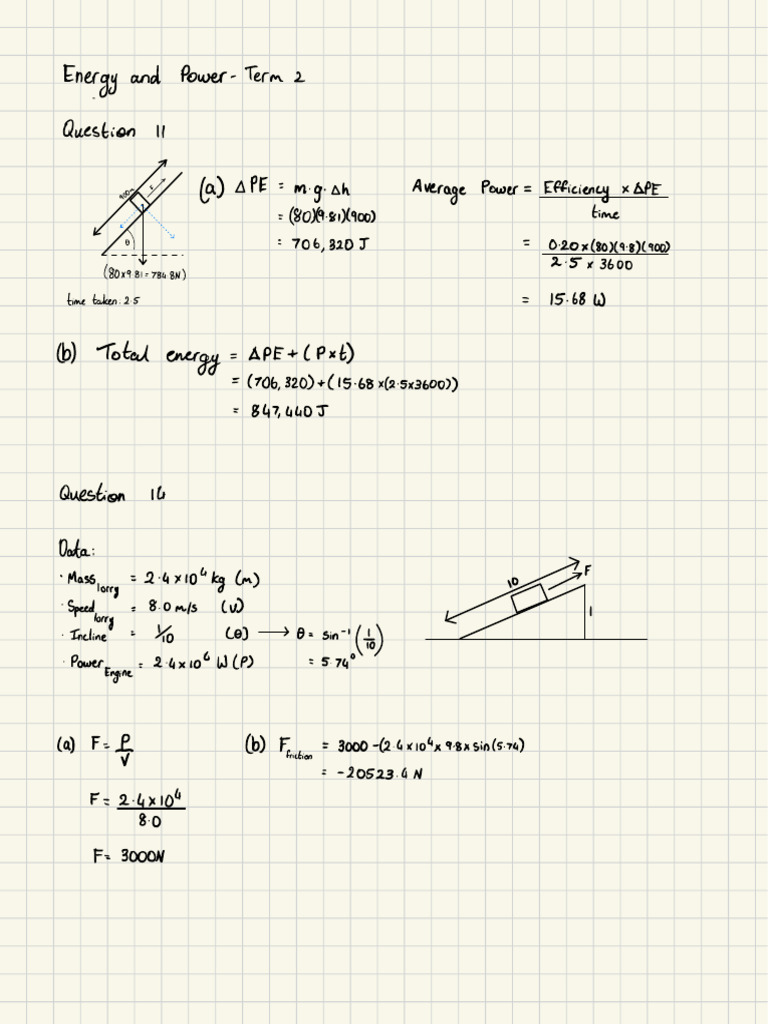 Energy and Power - Term 2
Question 11
900m
F
θ
(80×9.81=784.8N)
time taken: 2.5
(a) ΔPE = m.g.Δh
= (80)(9.81)(900)
= 706,320 J
Average Power = Efficiency × ΔPE / time
= 0.20×(80)(9.8)(900) / 2.5 × 3600
= 15.68 W
(b) Total energy = ΔPE + (P×t)
= (706,320)+(15.68×(2.5×3600))
= 847,440 J
Question 14
Data:
· Mass lorry = 2.4×10⁴ kg (m)
· Speed lorry = 8.0 m/s (v)
· Incline = 1/10 (θ) → θ = sin⁻¹(1/10)
= 5.74°
· Power Engine = 2.4×10⁴ W (P)
10
F
1
(a) F = P/V
F = 2.4×10⁴ / 8.0
F = 3000N
(b) F friction = 3000 -(2.4×10⁴×9.8×sin(5.74)
= -20523.4 N